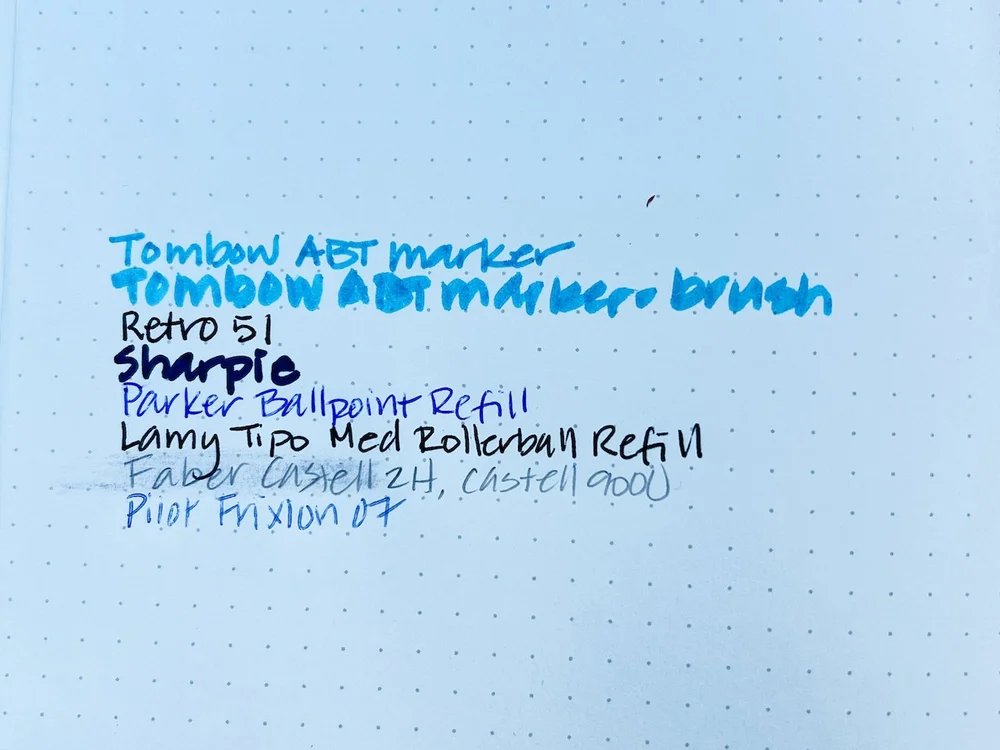 Tombow ABT marker
Tombow ABT marker brush
Retro 51
Sharpie
Parker Ballpoint Refill
Lamy Tipo Med Rollerball Refill
Faber Castell 2H, Castell 9000
Pilot Frixion 07